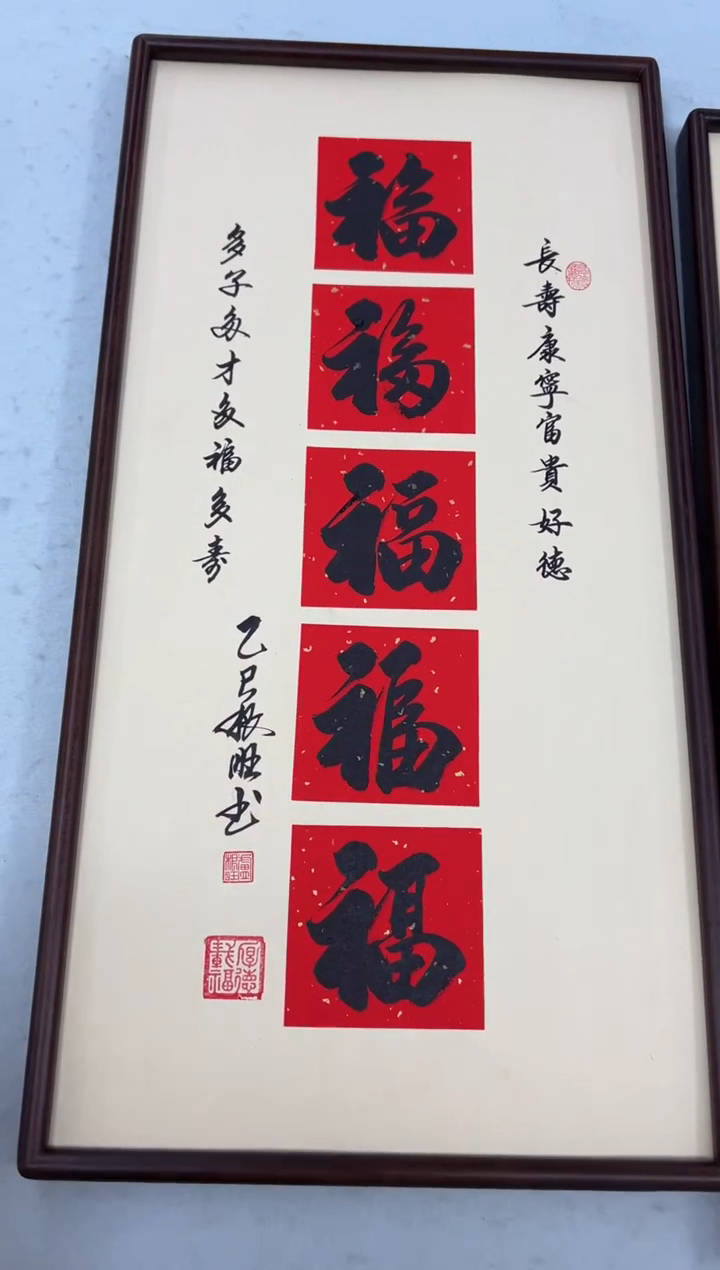 長壽康寧富貴好德
福
福
福
福
福
多子多才多福多壽
乙巳振旺书
厚德載福